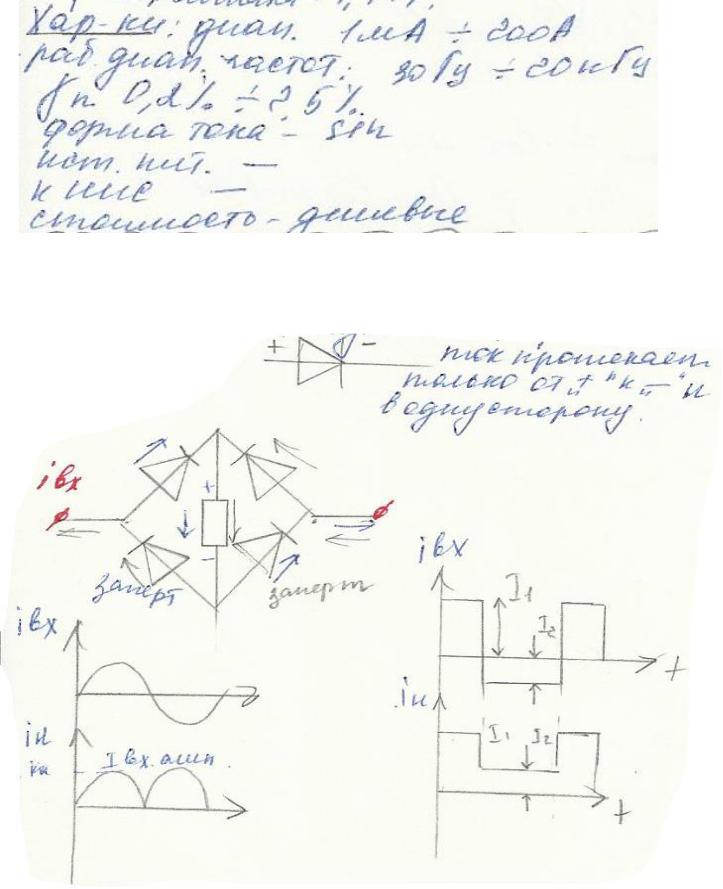 Хар-ки: диап. 1мА ÷ 200А
раб. диап. частот: 30Гц ÷ 20кГц
γп. 0,2% ÷ 2,5%
форма тока – sin
ист. пит. —
к ИИС —
стоимость – дешевые
+ -
ток протекает
только от "+" к "–" и
в одну сторону.
i вх
+
-
заперт
заперт
i вх
iн
I вх. амп.
i вх
I1
I2
t
iн
I1 I2
t